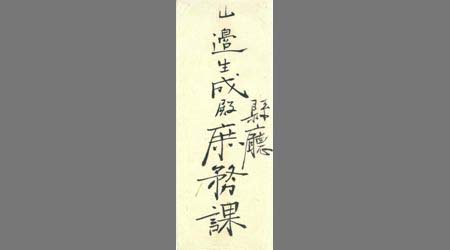 縣廳
山邊生成殿庶務課